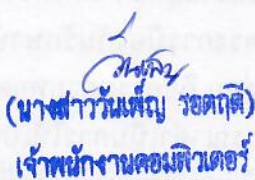 วันเพ็ญ
(นางสาววันเพ็ญ รอดฤดี)
เจ้าพนักงานคอมพิวเตอร์